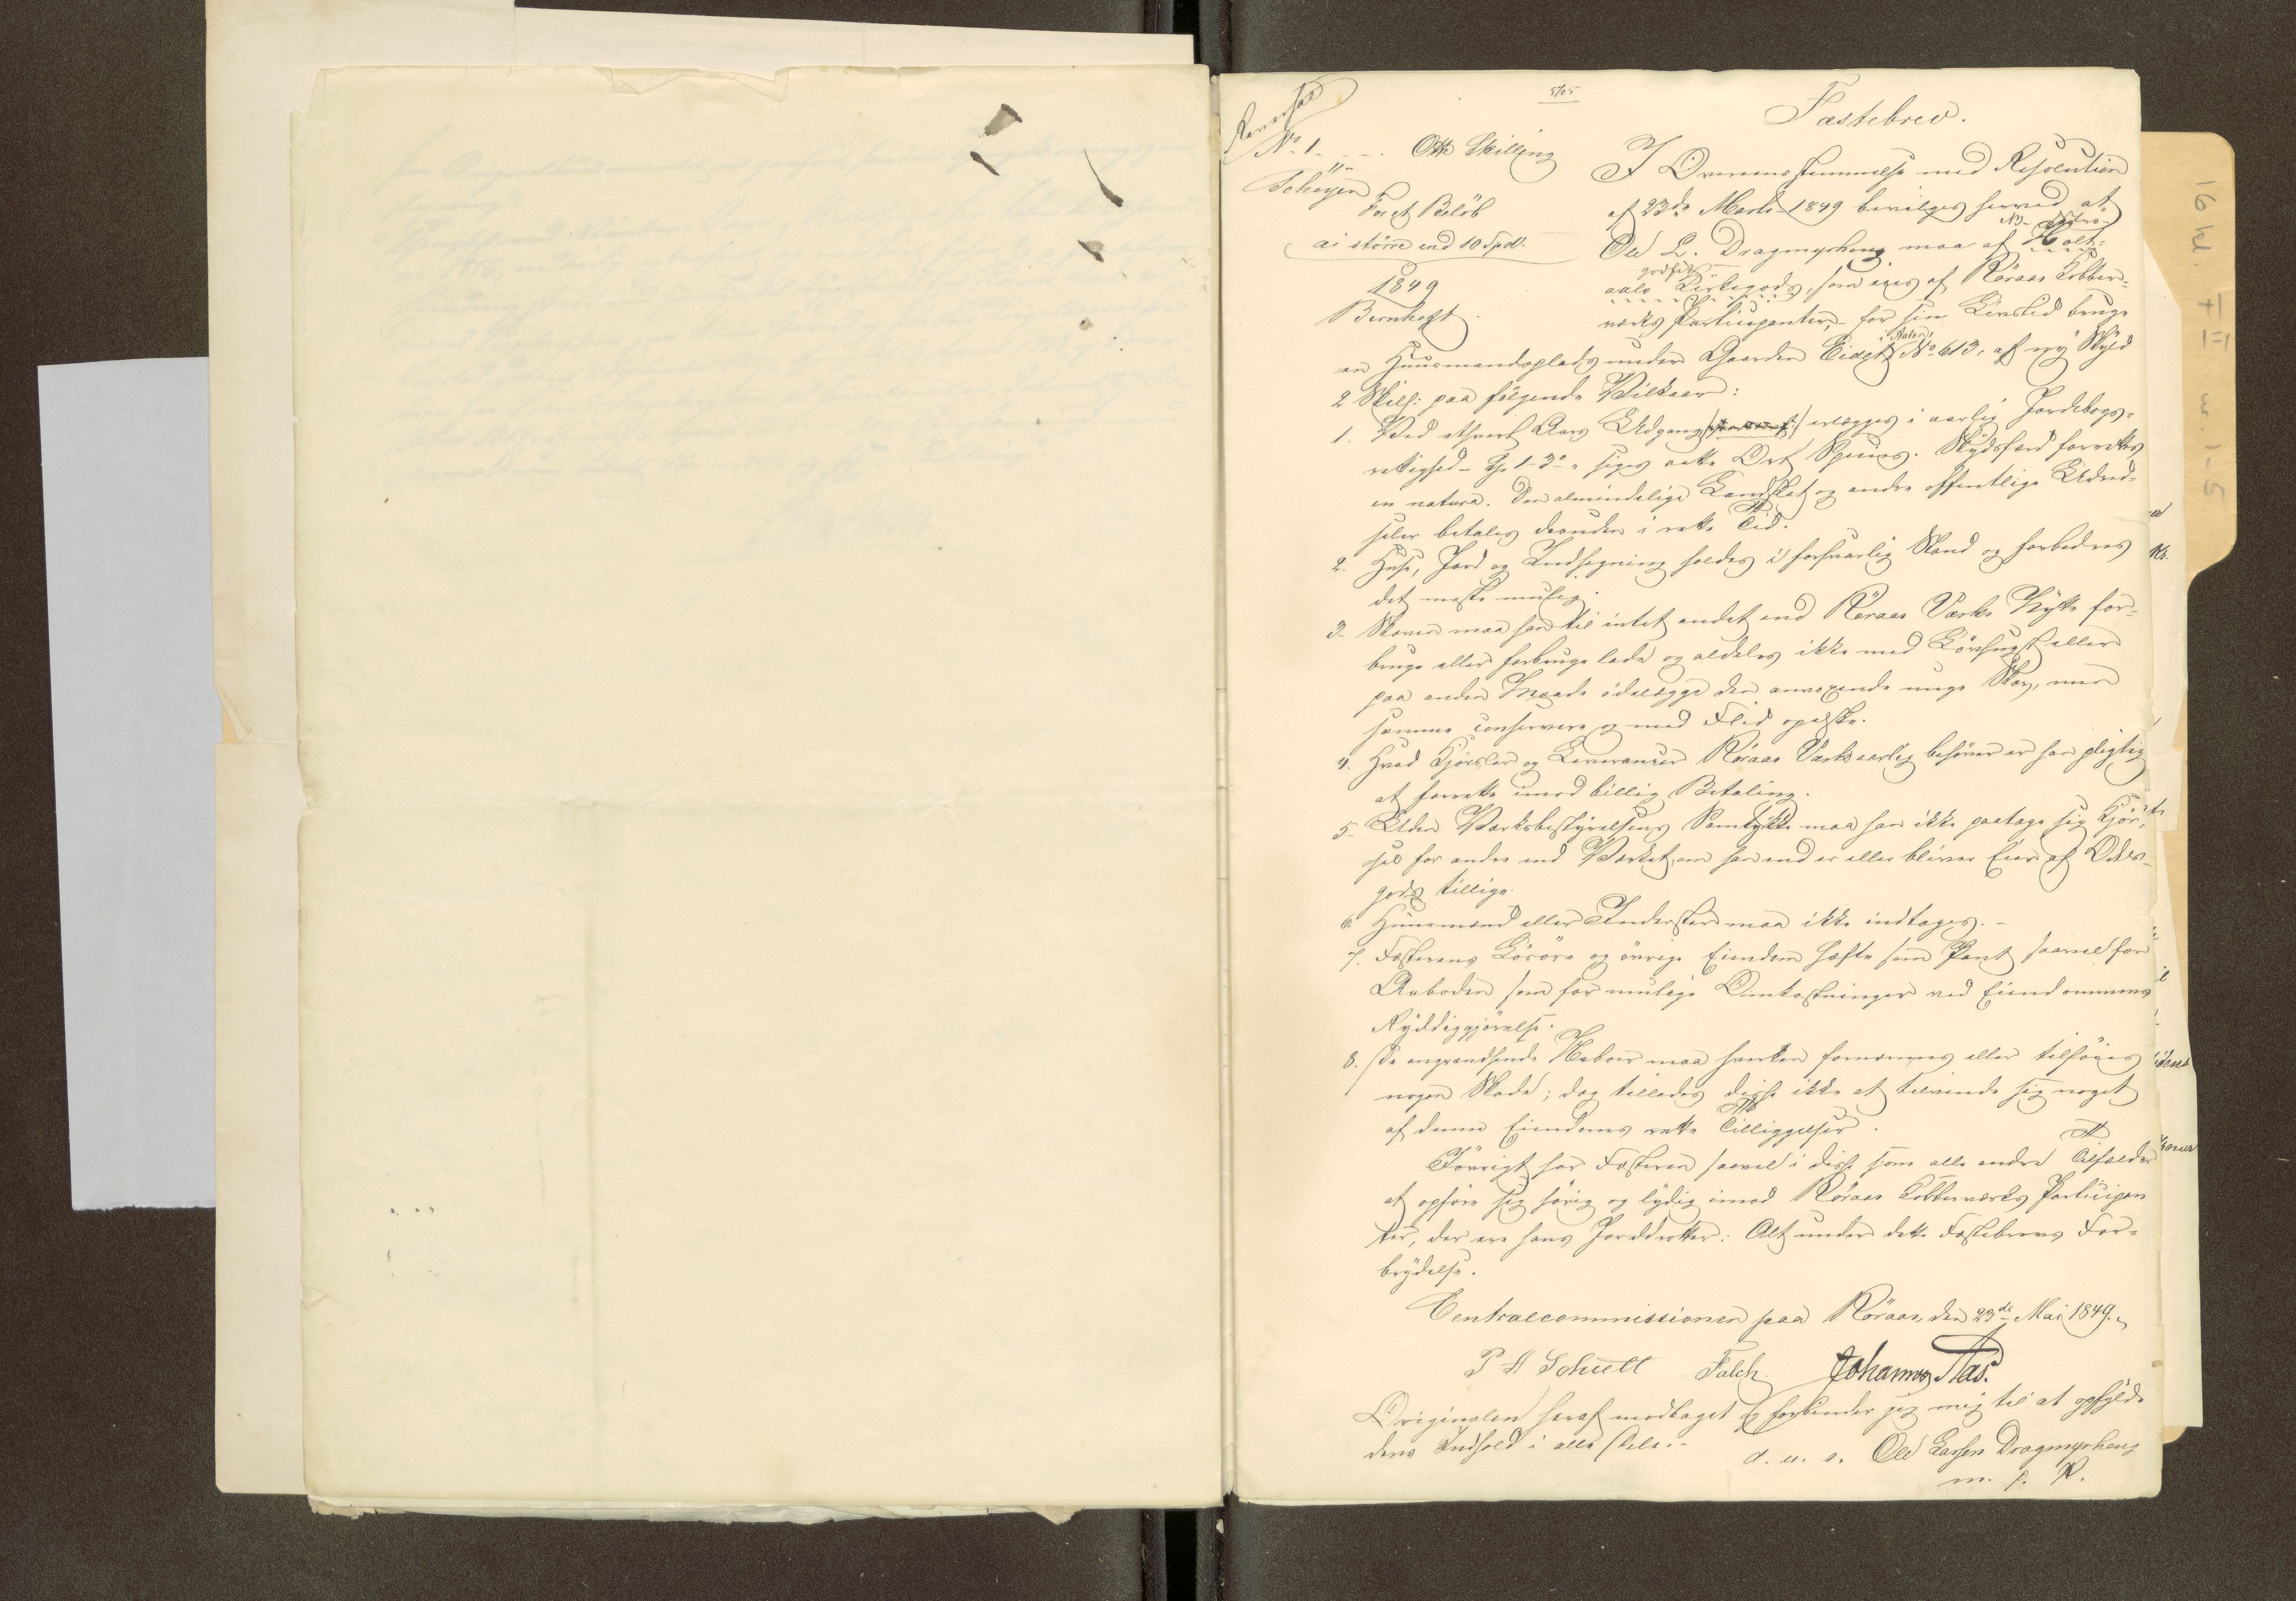 Fæstebrev.
No 1 - - - Otte Skilling
Schøyen
For et Beløb
ei større end 10 Spdl.
1849
Bernhoft.
I Overensstemmelse med Resolution
af 23de Marts 1849 bevilges herved at
Ole L. Dragmyrhaug maa af Holt-
aals Kirkegods, som eies af Røraas Kobber-
værks Participanter, for sin Livstid bruge
en Huusmandsplads under Gaarden Eidet No 613, af ny Skyld
2 Skill: paa følgende Vilkaar:
1. Ved ethvert Aars Udgang erlægges i aarlig Jordebogs-
rettighed - 1-3 - siges rette Ort Species. Skydsfærd forrettes
in natura. Den almindelige Landskat og andre offentlige Udred-
seler betales desuden i rette Tid.
2. Huse, Jord og Indhegning holdes i forsvarlig Stand og forbedres
det meste mulig.
3. Skoven maa han til intet andet end Røraas Værks Nytte for-
bruge eller forbruge lade og aldeles ikke med Løvhugst eller
paa anden Maade ødelægge den anvoxende unge Skov, men
samme conservere og med Flid opelske.
4. Hvad Kjørsler og Leverancer Røraas Værk aarlig behøver er han pligtig
at forrette imod billig Betaling.
5. Uden Værksbestyrelsens Samtykke maa han ikke paatage sig Kjør-
sel for andre end Værket, om han end er eller bliver Eier af Odels-
gods tillige.
6. Huusmænd eller Inderster maa ikke indtages. -
7. Fæsterens Løsøre og øvrige Eiendom hæfte som Pant saavel for
Aaboden som for mulige Omkostninger ved Eiendommens
Ryddiggjørelse.
8. De angrændsende Naboer maa hverken fornærmes eller tilføies
nogen Skade; dog tillades disse ikke at tilvende sig noget
af denne Eiendoms rette Tilliggelser.
Iøvrigt har Fæsteren saavel i disse som alle andre Tilfælde
at opføre sig hørig og lydig imod Røraas Kobberværks Participan
ter, der ere hans Jorddrotter: Alt under dette Fæstebrevs For-
brydelse.
Centralcommissionen paa Røraas, den 23de Mai 1849.
P A Schult Falch. Johannes Aas.
Originalen heraf modtaget og forbinder jeg mig til at opfylde
dens Indhold i alle Dele. -
d. u. s. Ole Larsen Dragmyrhaug
m. p. P.
16 kl. + II nr. 1-5